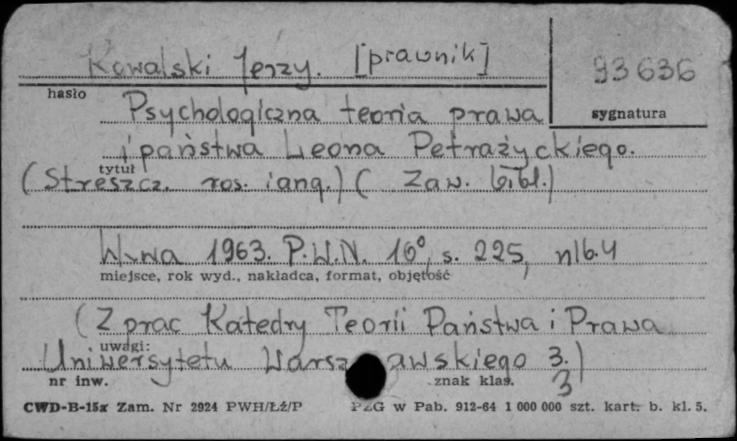 Kowalski Jerzy. [prawnik]
93636
hasło
sygnatura
Psychologiczna teoria prawa
i państwa Leona Petrażyckiego.
tytuł
(Streszcz. ros. i ang.) ( Zaw. bibl.)
W-wa 1963. P.W.N. 16°, s. 225, nlb. 4
miejsce, rok wyd., nakładca, format, objętość
(Z prac Katedry Teorii Państwa i Prawa
uwagi:
Uniwersytetu Warszawskiego 3.)
nr inw.
znak klas.
3
CWD-B-15x Zam. Nr 2924 PWH/Łź/P
PZG w Pab. 912-64 1 000 000 szt. kart. b. kl. 5.